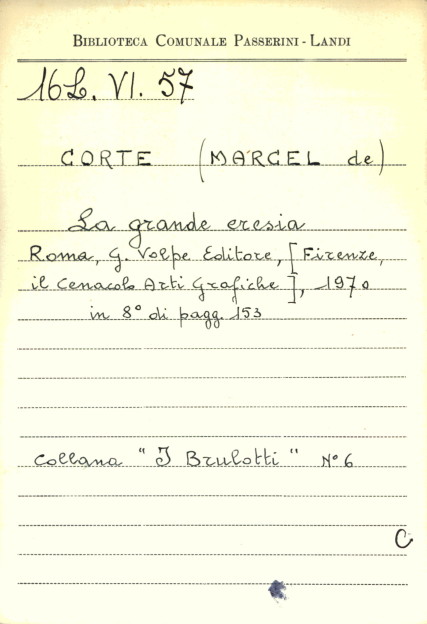 BIBLIOTECA COMUNALE PASSERINI - LANDI
16L. VI. 57
CORTE (MARCEL de)
La grande eresia
Roma, G. Volpe Editore, [Firenze,
il Cenacolo Arti Grafiche], 1970
in 8° di pagg. 153
Collana "I Brulotti" N° 6
C